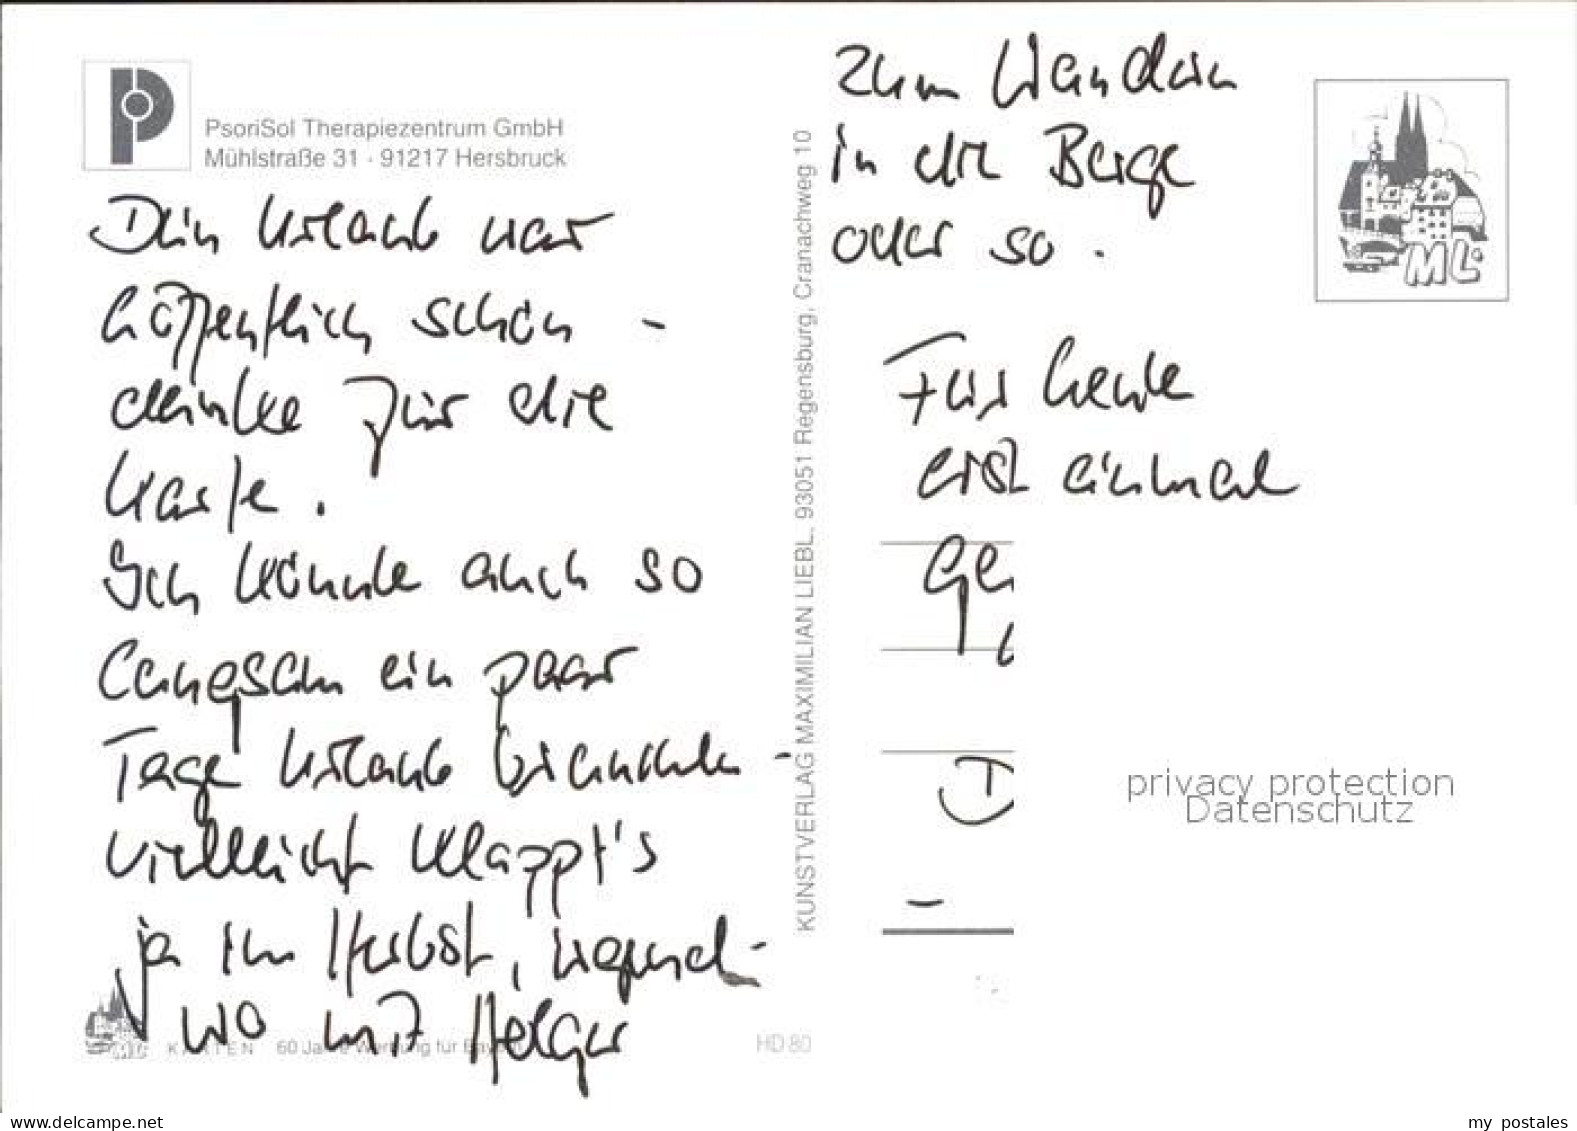 PsoriSol Therapiezentrum GmbH
Mühlstraße 31 · 91217 Hersbruck
Dein Urlaub war
hoffentlich schön -
danke für die
Karte.
Ich könnte auch so
langsam ein paar
Tage Urlaub brauchen -
vielleicht klappt's
ja im Herbst, irgend-
wo mit Holger
zum Wandern
in die Berge
oder so.
Für heute
erst einmal
KUNSTVERLAG MAXIMILIAN LIEBL, 93051 Regensburg, Cranachweg 10
ML
KARTEN 60 Jahre Werbung für Bayern
HD 80
privacy protection
Datenschutz
www.delcampe.net
my_postales